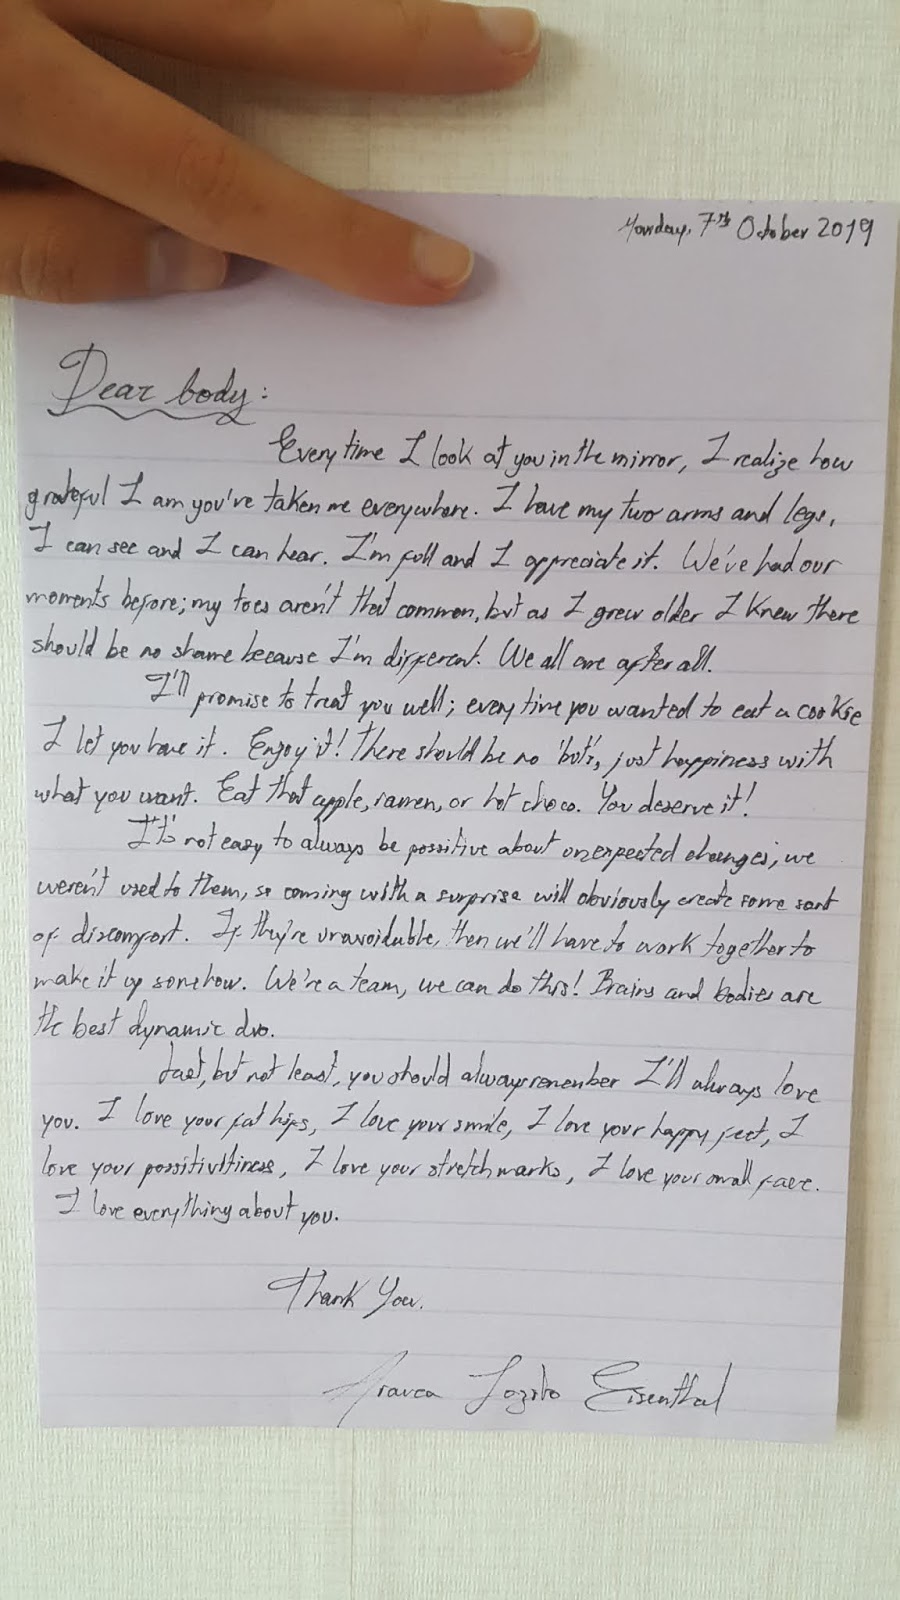 Monday, 7th October 2019
Dear body:
Every time I look at you in the mirror, I realize how
grateful I am you've taken me everywhere. I have my two arms and legs,
I can see and I can hear. I'm full and I appreciate it. We've had our
moments before; my toes aren't that common, but as I grew older I knew there
should be no shame because I'm different. We all are after all.
I'll promise to treat you well; every time you wanted to eat a cookie
I let you have it. Enjoy it! There should be no 'but's, just happiness with
what you want. Eat that apple, ramen, or hot choco. You deserve it!
It's not easy to always be possitive about unexpected changes; we
weren't used to them, so coming with a surprise will obviously create some sort
of discomfort. If they're unavoidable, then we'll have to work together to
make it up somehow. We're a team, we can do this! Brains and bodies are
the best dynamic duo.
Last, but not least, you should always remember I'll always love
you. I love your fat hips, I love your smile, I love your happy feet, I
love your possitivitiness, I love your stretch marks, I love your small face.
I love everything about you.
Thank You.
Eisenthal